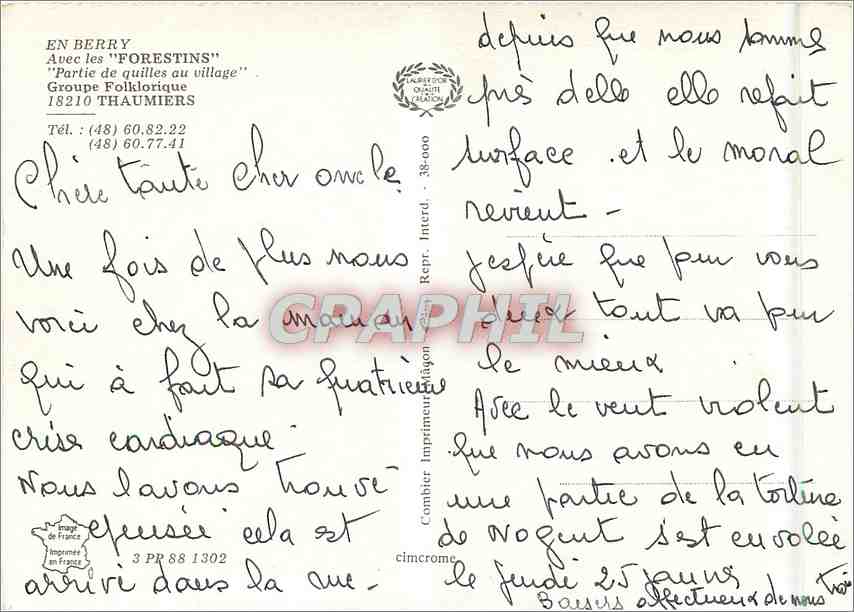 EN BERRY
Avec les "FORESTINS"
"Partie de quilles au village"
Groupe Folklorique
18210 THAUMIERS
Tél. : (48) 60.82.22
(48) 60.77.41
LAURIER D'OR
QUALITÉ
CRÉATION
Chère tante Cher oncle
Une fois de plus nous
voici chez la maman
qui à fait sa quatrième
crise cardiaque.
Nous lavons trouvé
épuisée cela est
arrivé dans la rue -
Image
de France
Imprimée
en France
3 PP 88 1302
cimcrome
Combier Imprimeur Mâcon - Repr. Interd. - 38-000
CPAPHIL
depuis que nous sommes
près delle elle refait
surface . et le moral
revient -
jespère que pour vous
deux tout va pour
le mieux
Avec le vent violent
que nous avons eu
une partie de la
de Nogent s'est envolée
le jeudi 25 janvier
Baisers affectueux de nous trois